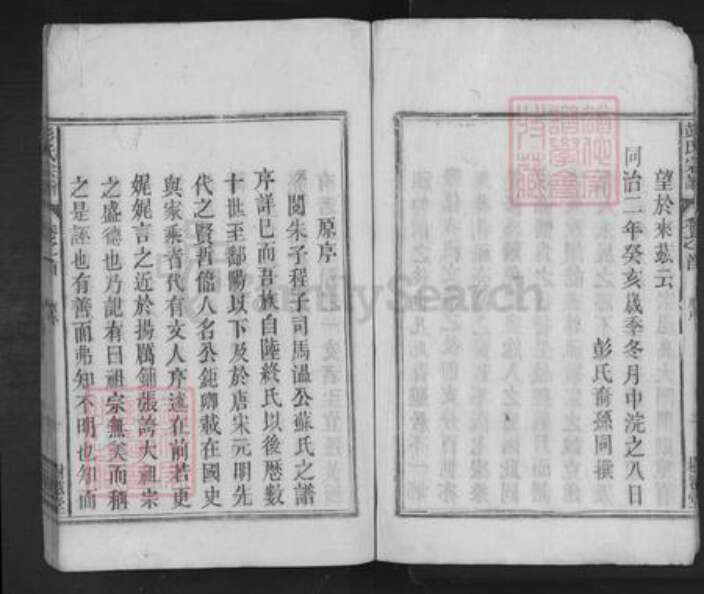 望於來茲云
同治二年癸亥歲季冬月中浣之八日
彭氏裔孫同撰
原序
閱朱子程子司馬溫公蘇氏之譜
序詳已而吾族自陸終氏以後歷數
十世至鄱陽以下及於唐宋元明先
代之賢哲偹人名公鉅卿載在國史
與家乘者代有文人序述在前若更
娓娓言之近於揚厲鋪張誇大祖宗
之盛德也乃記有曰祖宗無美而稱
之是誣也有善而弗知不明也知而
FamilySearch